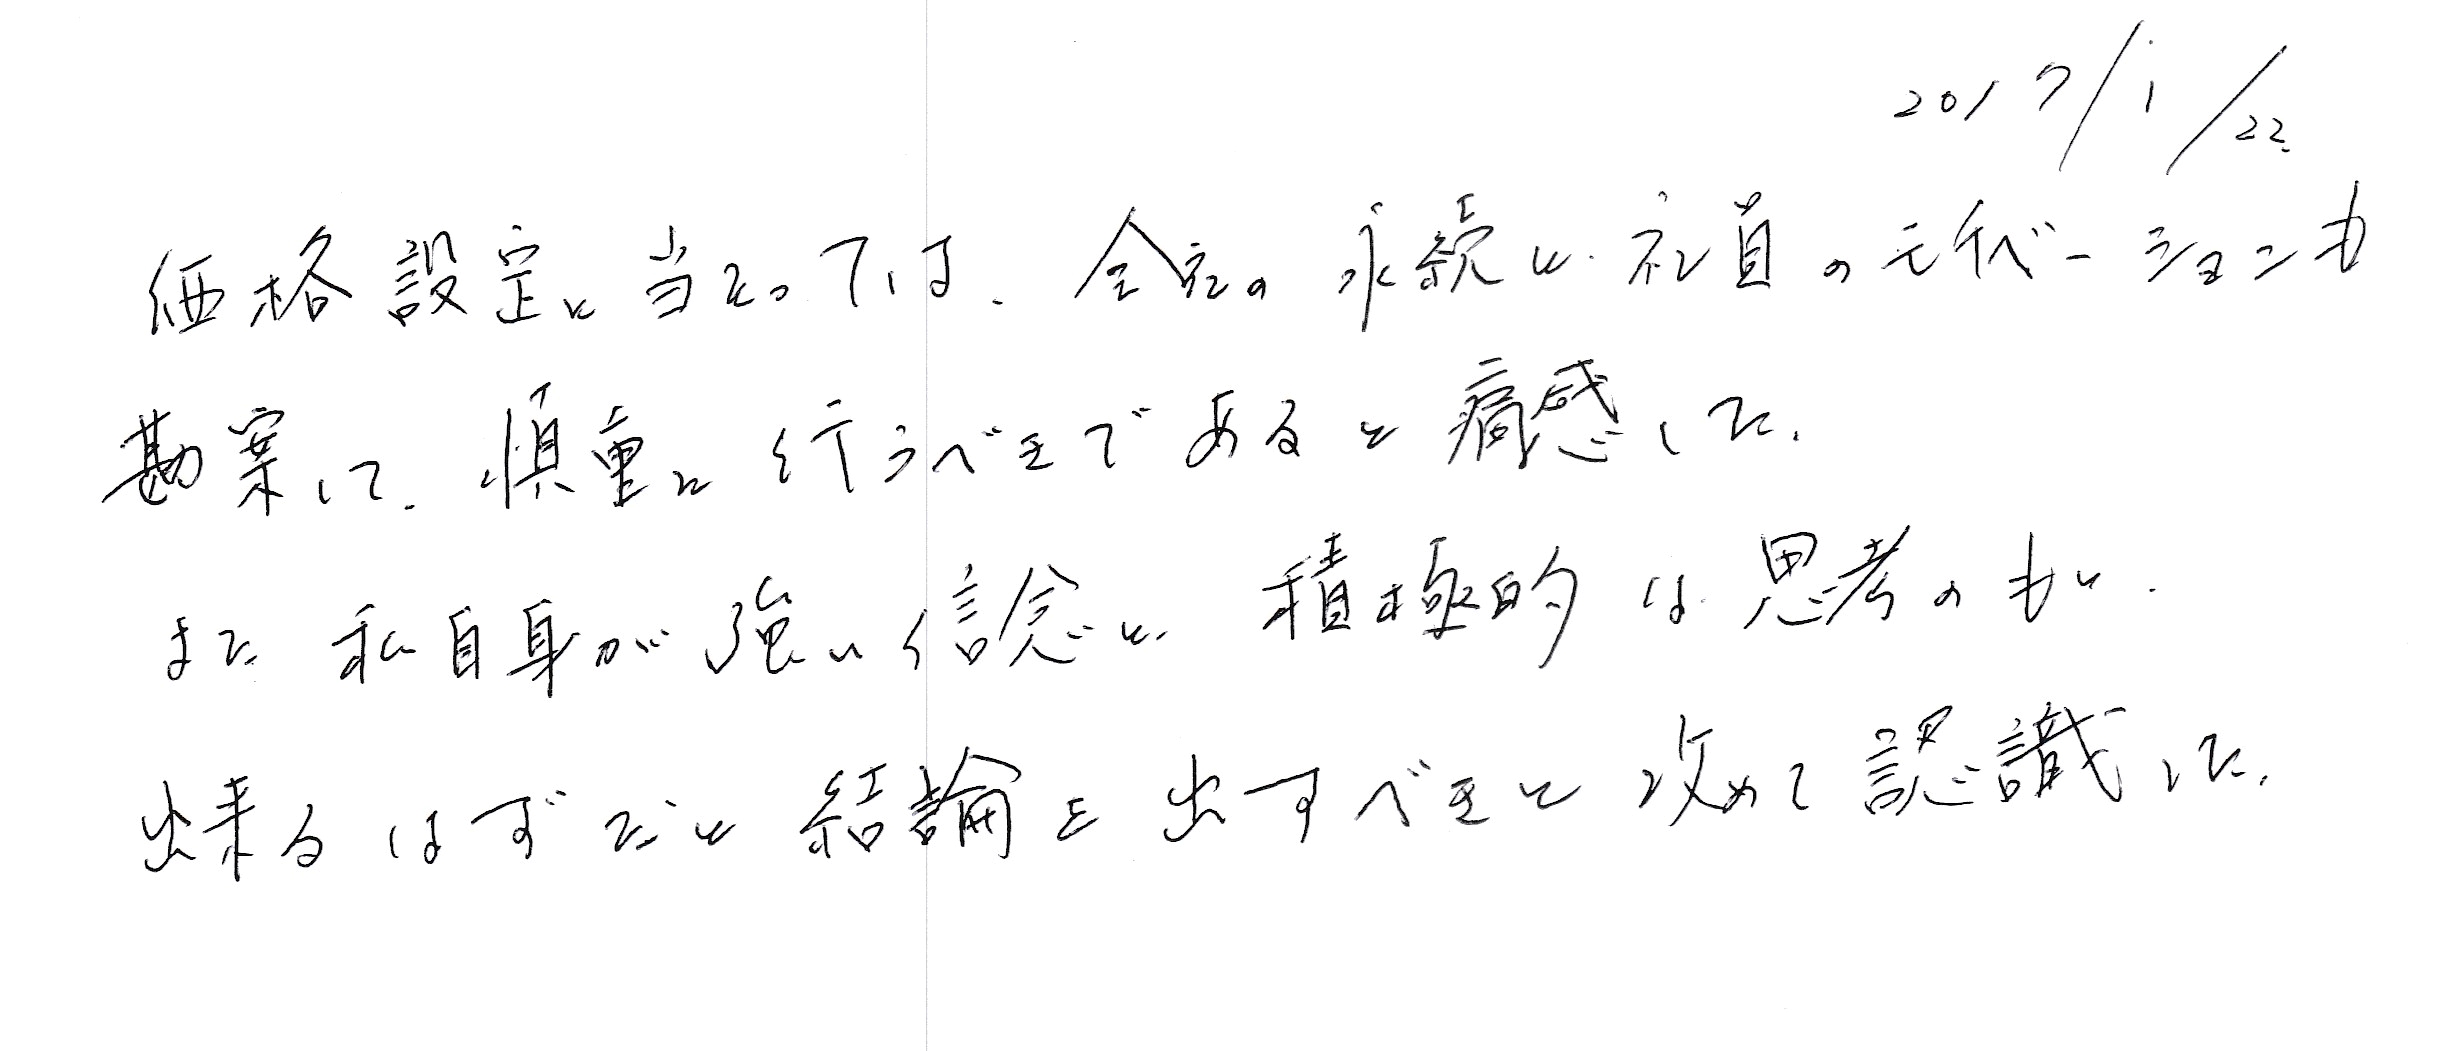 2017/1/22
価格設定に当たっては、会社の永続と、社員のモチベーションも
勘案して、慎重に行うべきであると痛感した。
また私自身が強い信念と、積極的な思考のもと、
出来るはずだと結論を出すべきと改めて認識した。